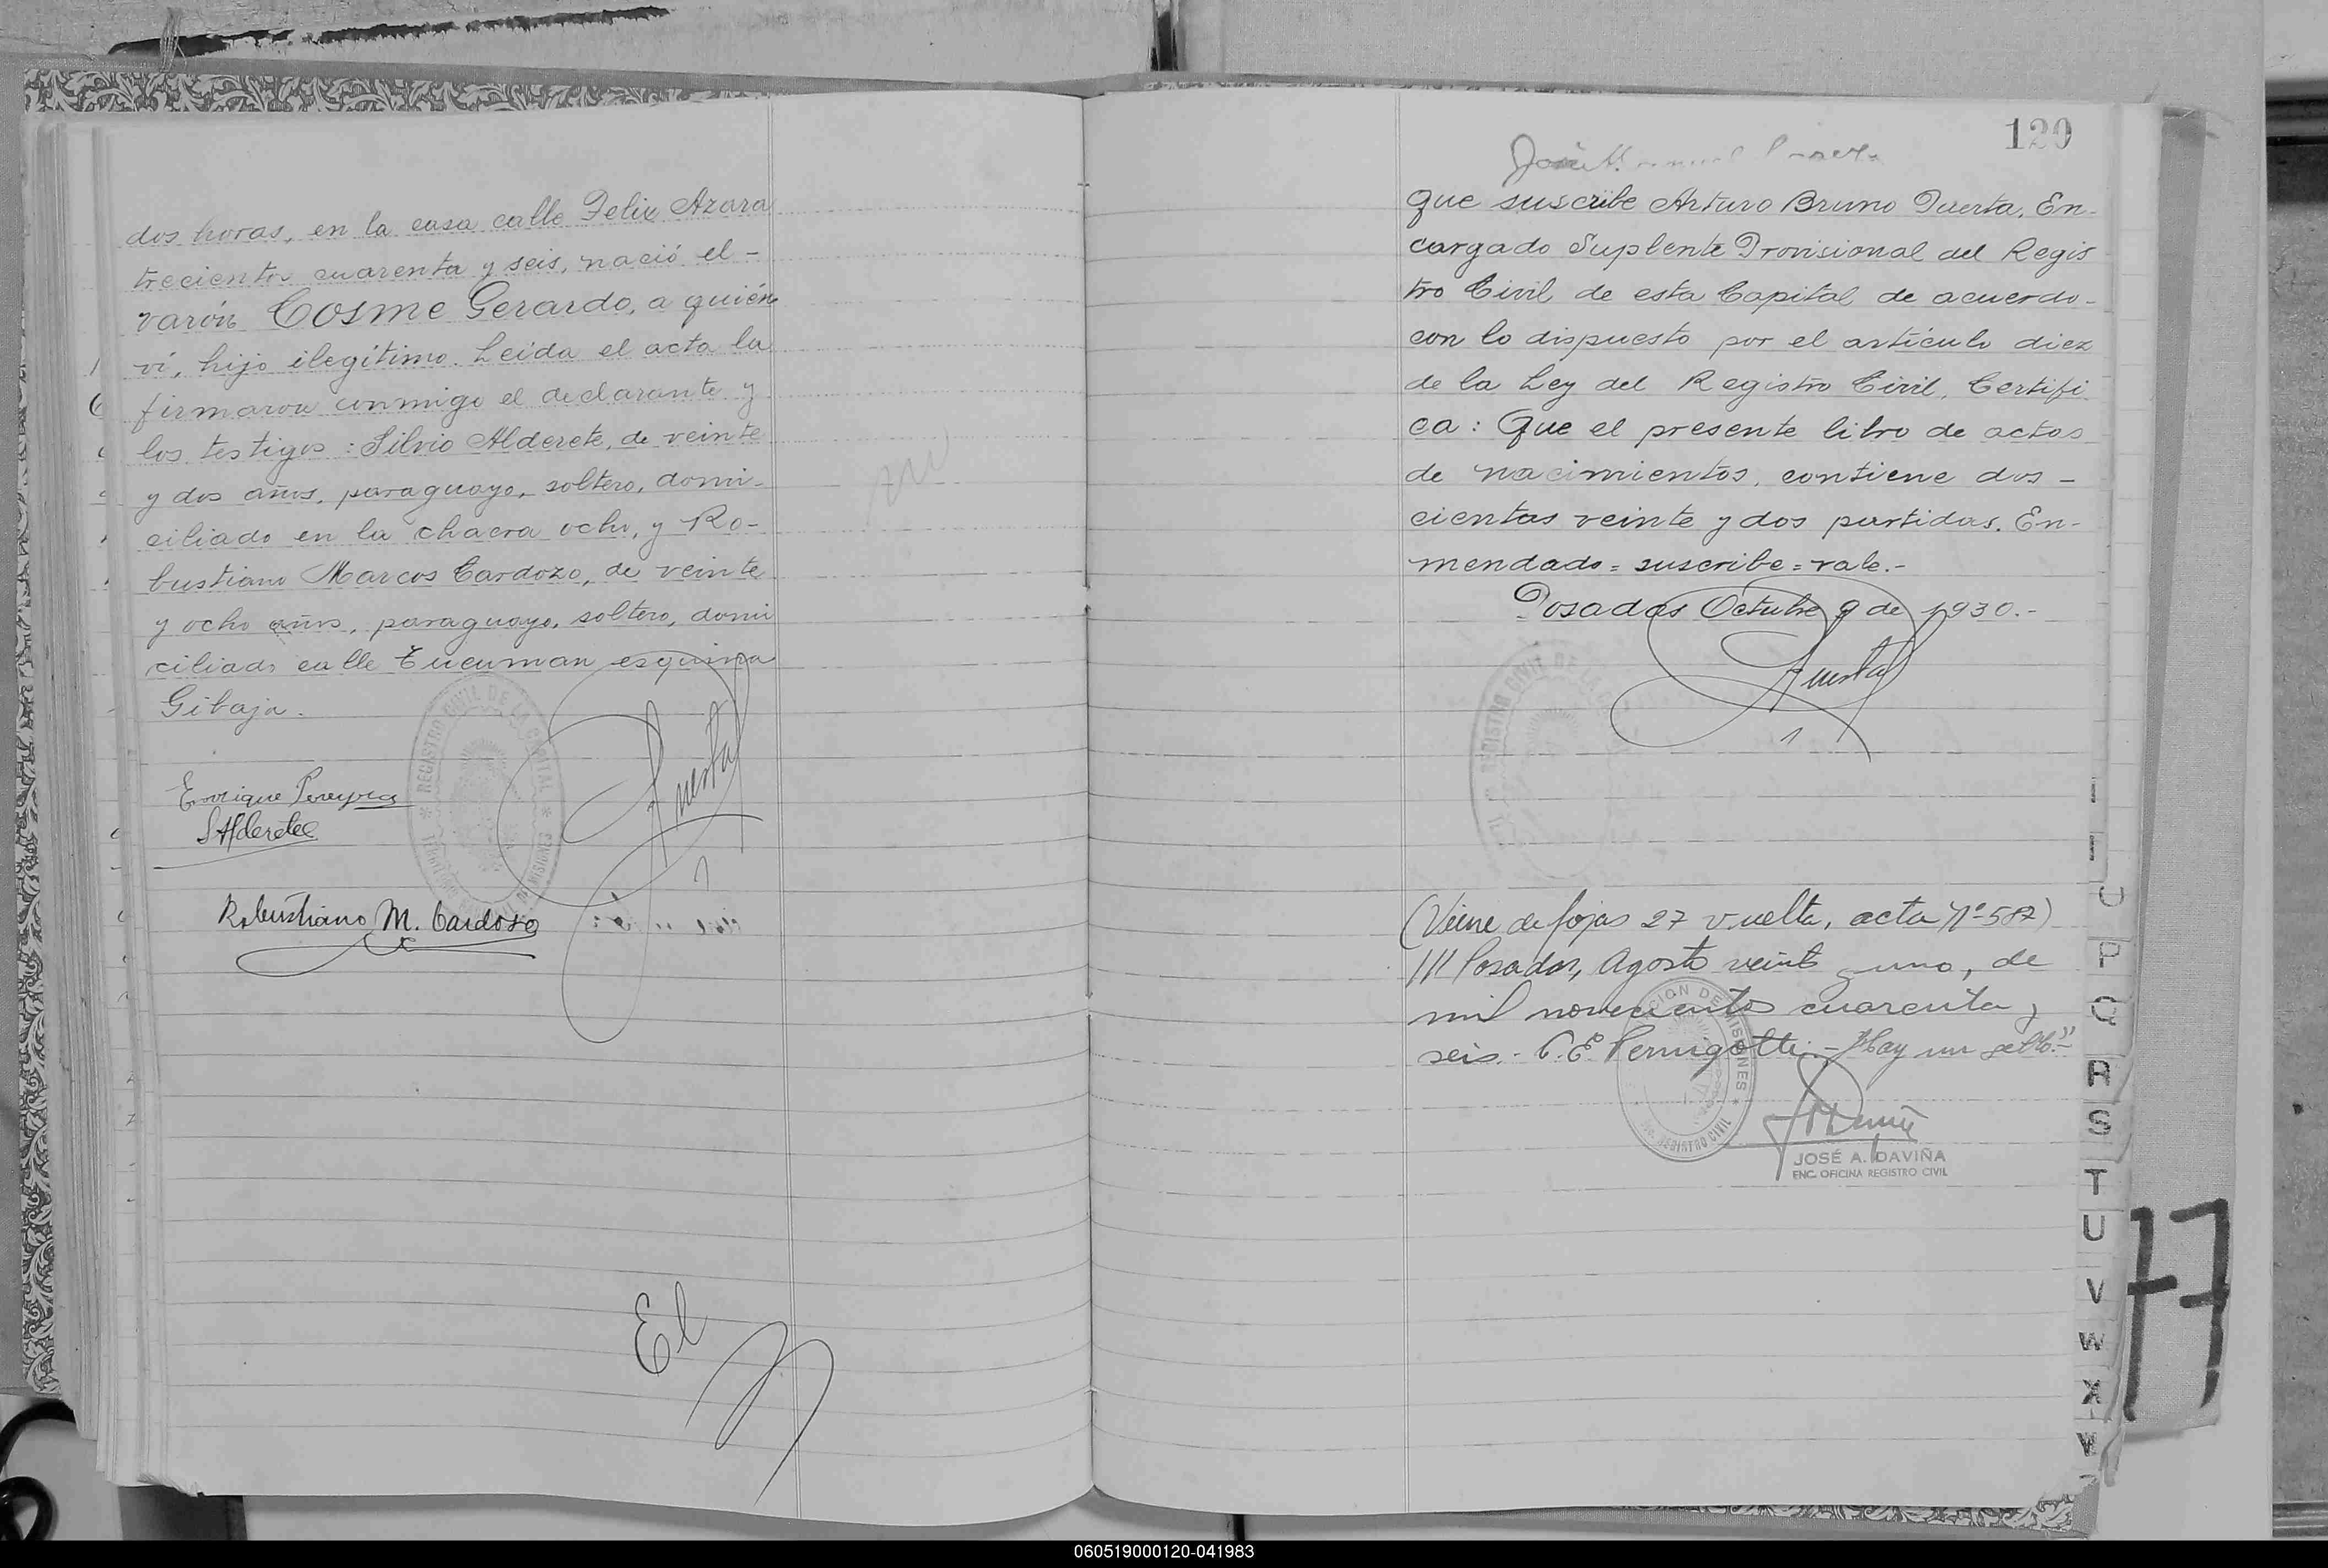 dos horas, en la casa calle Felix Azara
trecientos cuarenta y seis, nació el -
varón Cosme Gerardo, a quién
ví, hijo ilegítimo. Leída el acta la
firmaron conmigo el declarante y
los testigos: Silvio Alderete, de veinte
y dos años, paraguayo, soltero, domi-
ciliado en la chacra ocho, y Ro-
bustiano Marcos Cardozo, de veinte
y ocho años, paraguayo, soltero, domi
ciliado calle Tucuman esquina
Gibaja.
REGISTRO CIVIL DE LA CAPITAL
DE MISIONES
Enrique Pereyra
SAlderete
Puerta
Robustiano M. Cardoso
El
120
José
que suscribe Arturo Bruno Puerta, En-
cargado Suplente Provisional del Regis
tro Civil de esta Capital de acuerdo-
con lo dispuesto por el artículo diez
de la Ley del Registro Civil, Certifi
ca: Que el presente libro de actas
de nacimientos, contiene dos -
cientas veinte y dos partidas. En-
mendado = suscribe = vale.-
Posadas Octubre 9 de 1930.-
Puerta
REGISTRO CIVIL DE LA
(Viene de fojas 27 vuelta, acta Nº 587)
/// Posadas, Agosto veinte y uno, de
mil novecientos cuarenta y
seis.- C. E. Pernigotti.- Hay un sello."-
DE MISIONES
REGISTRO CIVIL
JOSÉ A. DAVIÑA
ENC. OFICINA REGISTRO CIVIL
P
Q
R
S
T
U
V
W
X
Y
77
060519000120-041983